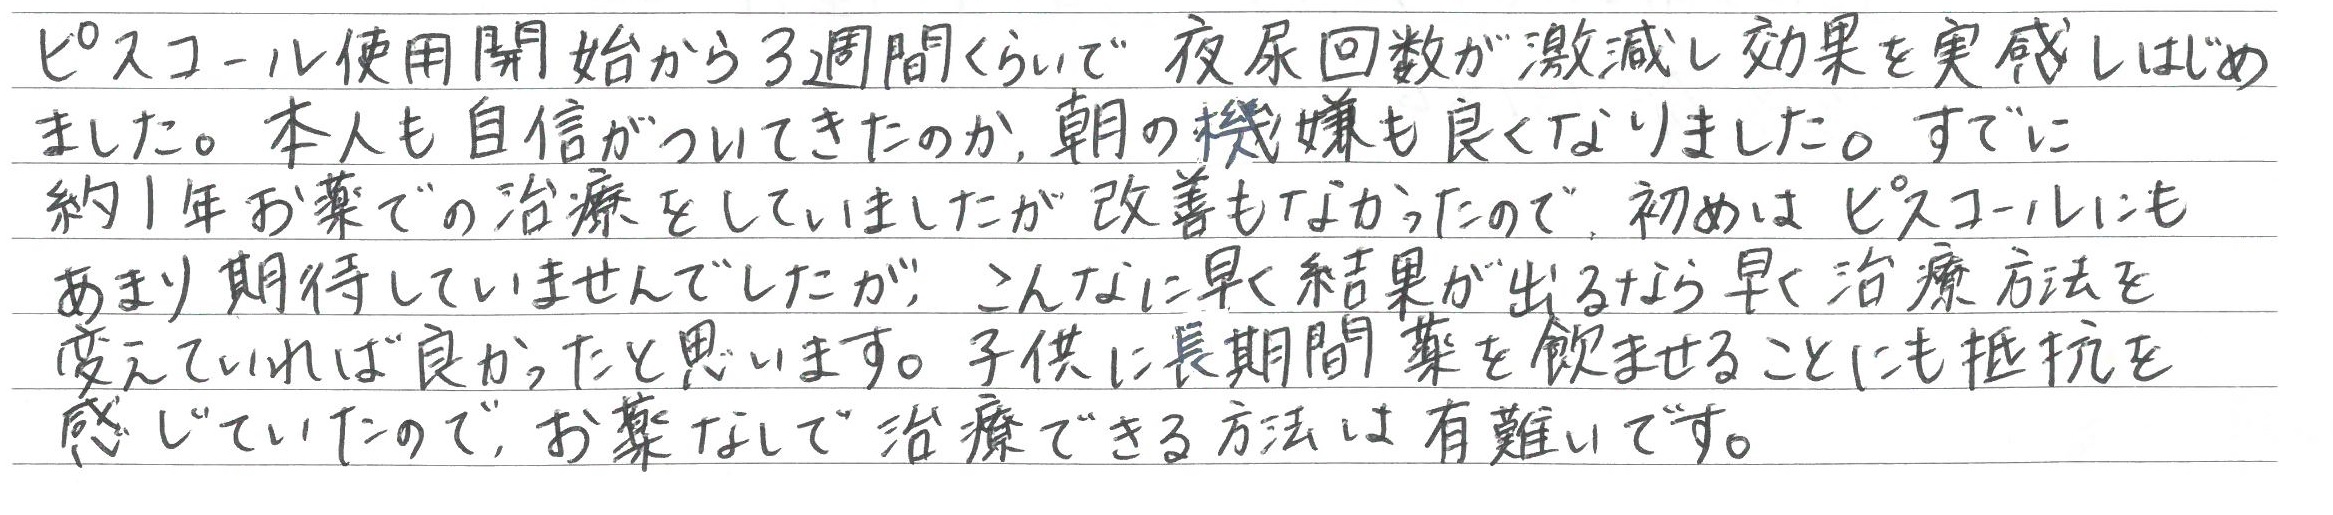 ピスコール使用開始から3週間くらいで 夜尿回数が激減し効果を実感しはじめ
ました。本人も自信がついてきたのか、朝の機嫌も良くなりました。すでに
約1年お薬での治療をしていましたが改善もなかったので、初めは ピスコールにも
あまり期待していませんでしたが、こんなに早く結果が出るなら早く治療方法を
変えていれば良かったと思います。子供に長期間薬を飲ませることにも抵抗を
感じていたので、お薬なしで治療できる方法は有難いです。